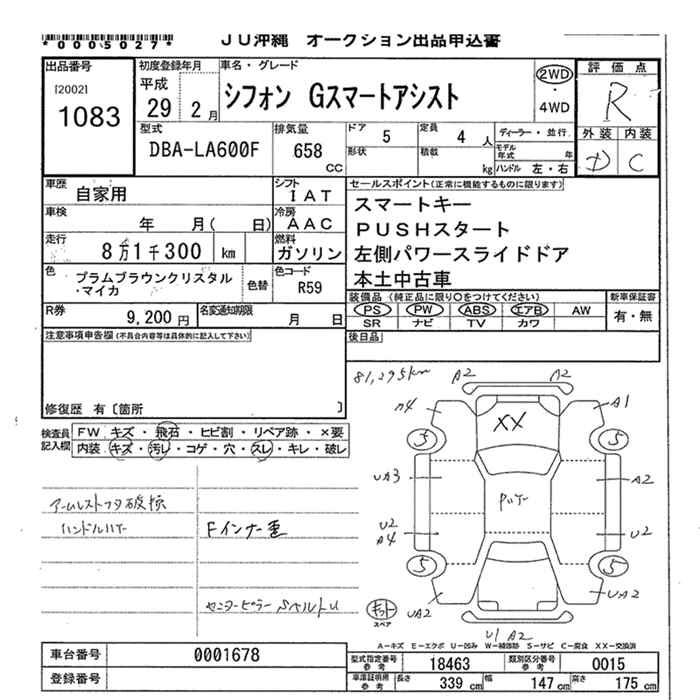 *0005027*
JU沖縄 オークション出品申込書
出品番号
[2002]
1083
初度登録年月
平成
29 2月
車名・グレード
シフォン Gスマートアシスト
2WD
・
4WD
評価点
R
外装 内装
D C
型式
DBA-LA600F
排気量
658
CC
ドア 5
定員 4 人
形状
積載 kg
ディーラー・並行.
モデル年式 年
ハンドル 左・右
車歴
自家用
シフト
IAT
車検
年 月( 日)
冷房
AAC
走行
8万1千300 km
燃料
ガソリン
色
プラムブラウンクリスタル
・マイカ
色替
色コード
R59
R券
9,200円
名変通知期限
月 日
セールスポイント(正常に機能するものに限ります)
スマートキー
PUSHスタート
左側パワースライドドア
本土中古車
装備品 (純正品に限り○をつけてください)
PS PW ABS エアB AW
SR ナビ TV カワ
新車保証書
有・無
後日品
注意事項申告欄(不具合内容等は具体的に記入して下さい)
修復歴 有〔箇所 〕
検査員
記入欄
FW キズ・飛石・ヒビ割・リペア跡・×要
内装 キズ・汚レ・コゲ・穴・スレ・キレ・破レ
アームレストフタ破損
Fインナー歪
81,295km
A2 A2
A4 A1
XX
5 5
UA3 A2
U2
A4
U2
5 5
UA2 UA2
U1 A2
キット
スペア
A−キズ E−エクボ U−凹み W−補修跡 S−サビ C−腐食 XX−交換済
車台番号
0001678
登録番号
型式指定番号
参考
18463
類別区分番号
参考
0015
車庫証明用
参考
長さ 339 cm
幅 147 cm
高さ 175 cm